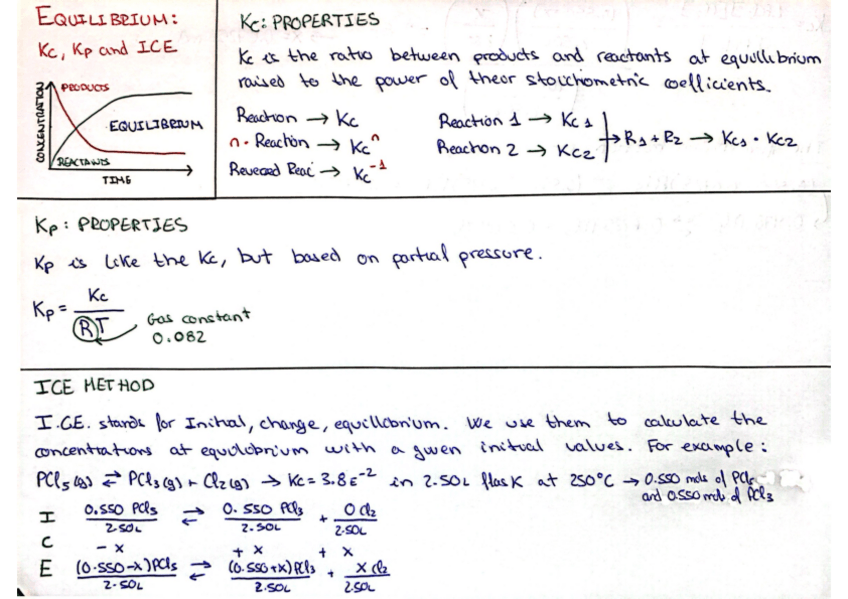 EQUILIBRIUM:
Kc, Kp and ICE
CONCENTRATION
PRODUCTS
EQUILIBRIUM
REACTANTS
TIME
Kc: PROPERTIES
Kc is the ratio between products and reactants at equilibrium
raised to the power of their stoichometric coefficients.
Reaction → Kc
n · Reaction → Kc^n
Reversed Reac → Kc^-1
Reaction 1 → Kc1
Reaction 2 → Kc2
→ R1 + R2 → Kc1 · Kc2
Kp: PROPERTIES
Kp is like the Kc, but based on partial pressure.
Kp = Kc / RT
Gas constant
0.082
ICE METHOD
I.CE. stands for Initial, change, equilibrium. We use them to calculate the
concentrations at equilibrium with a given initial values. For example:
PCl5(g) ⇄ PCl3(g) + Cl2(g) → Kc = 3.8E^-2 in 2.50L flask at 250°C → 0.550 mols of PCl5
and 0.550 mols of PCl3
I 0.550 PCl5 / 2.50L ⇄ 0.550 PCl3 / 2.50L + 0 Cl2 / 2.50L
C - x + x + x
E (0.550-x)PCl5 / 2.50L ⇄ (0.550+x)PCl3 / 2.50L + x Cl2 / 2.50L